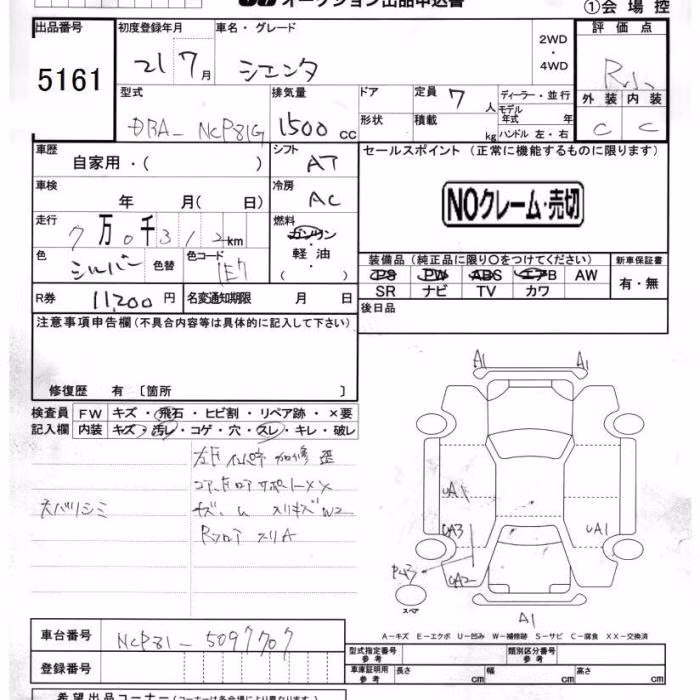 オークション出品申込書
①会場控
出品番号 初度登録年月 車名・グレード 2WD・4WD 評価点
5161 21 7月 シエンタ R
型式 排気量 ドア 定員 7人 ディーラー・並行 外装 内装
DBA-NCP81G 1500cc 形状 積載 kg モデル年式 年 C C
ハンドル 左・右
車歴 自家用・( ) シフト AT セールスポイント (正常に機能するものに限ります)
車検 年 月( 日) 冷房 AC NOクレーム・売切
走行 7万0千312km 燃料 ガソリン・軽油・( )
色 シルバー 色替 色コード 1E7 装備品(純正品に限り〇をつけてください) 新車保証書
PS PW ABS エアB AW 有・無
SR ナビ TV カワ
R券 11,200円 名変通知期限 月 日 後日品
注意事項申告欄(不具合内容等は具体的に記入して下さい)
修復歴 有〔箇所 〕
検査員 FW キズ・飛石・ヒビ割・リペア跡・×要
記入欄 内装 キズ・汚レ・コゲ・穴・スレ・キレ・破レ
A1 A1
UA1
UA3 UA1
UA2
スペア
A1
A-キズ E-エクボ U-凹み W-補修跡 S-サビ C-腐食 XX-交換済
車台番号 NCP81-5097707 型式指定番号 参考 類別区分番号 参考
登録番号 車庫証明用 参考 長さ cm 幅 cm 高さ cm
希望出品コーナー(コーナーは各会場により異なります)